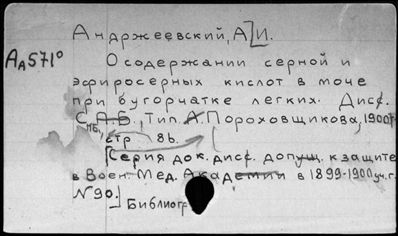 Андржеевский, А]И.
АА571°
О содержании серной и
эфиросерных кислот в моче
при бугорчатке легких. Дисс.
С.П.Б., Тип. А. Пороховщикова, 1900г
стр. 86.
[Серия док. дисс. допущ. к защите
в Воен. Мед. Академии в 1899-1900 уч. г.
N 90.]
Библиогр